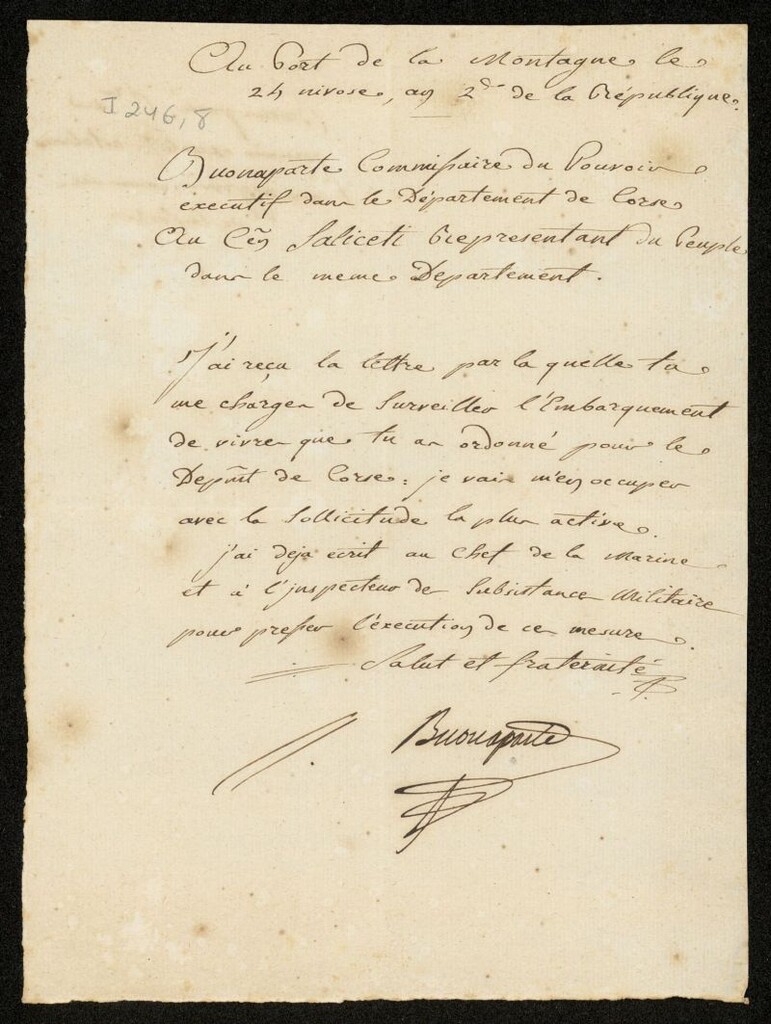 Au Port de la Montagne le
24 nivose, an 2d. de la République.
I 246, 8
Buonaparte Commissaire du Pouvoir
executif dans le Département de Corse
Au Cen Saliceti Representant du Peuple
dans le meme Departement.
J'ai reçu la lettre par la quelle tu
me charges de Surveiller l'Embarquement
de vivres que tu as ordonné pour le
Depmt de Corse: je vais m'en occuper
avec la Sollicitude la plus active.
j'ai deja ecrit au Chef de la Marine
et à l'inspecteur des Subsistances Militaires
pour presser l'execution de ces mesures.
Salut et fraternité
Buonaparte